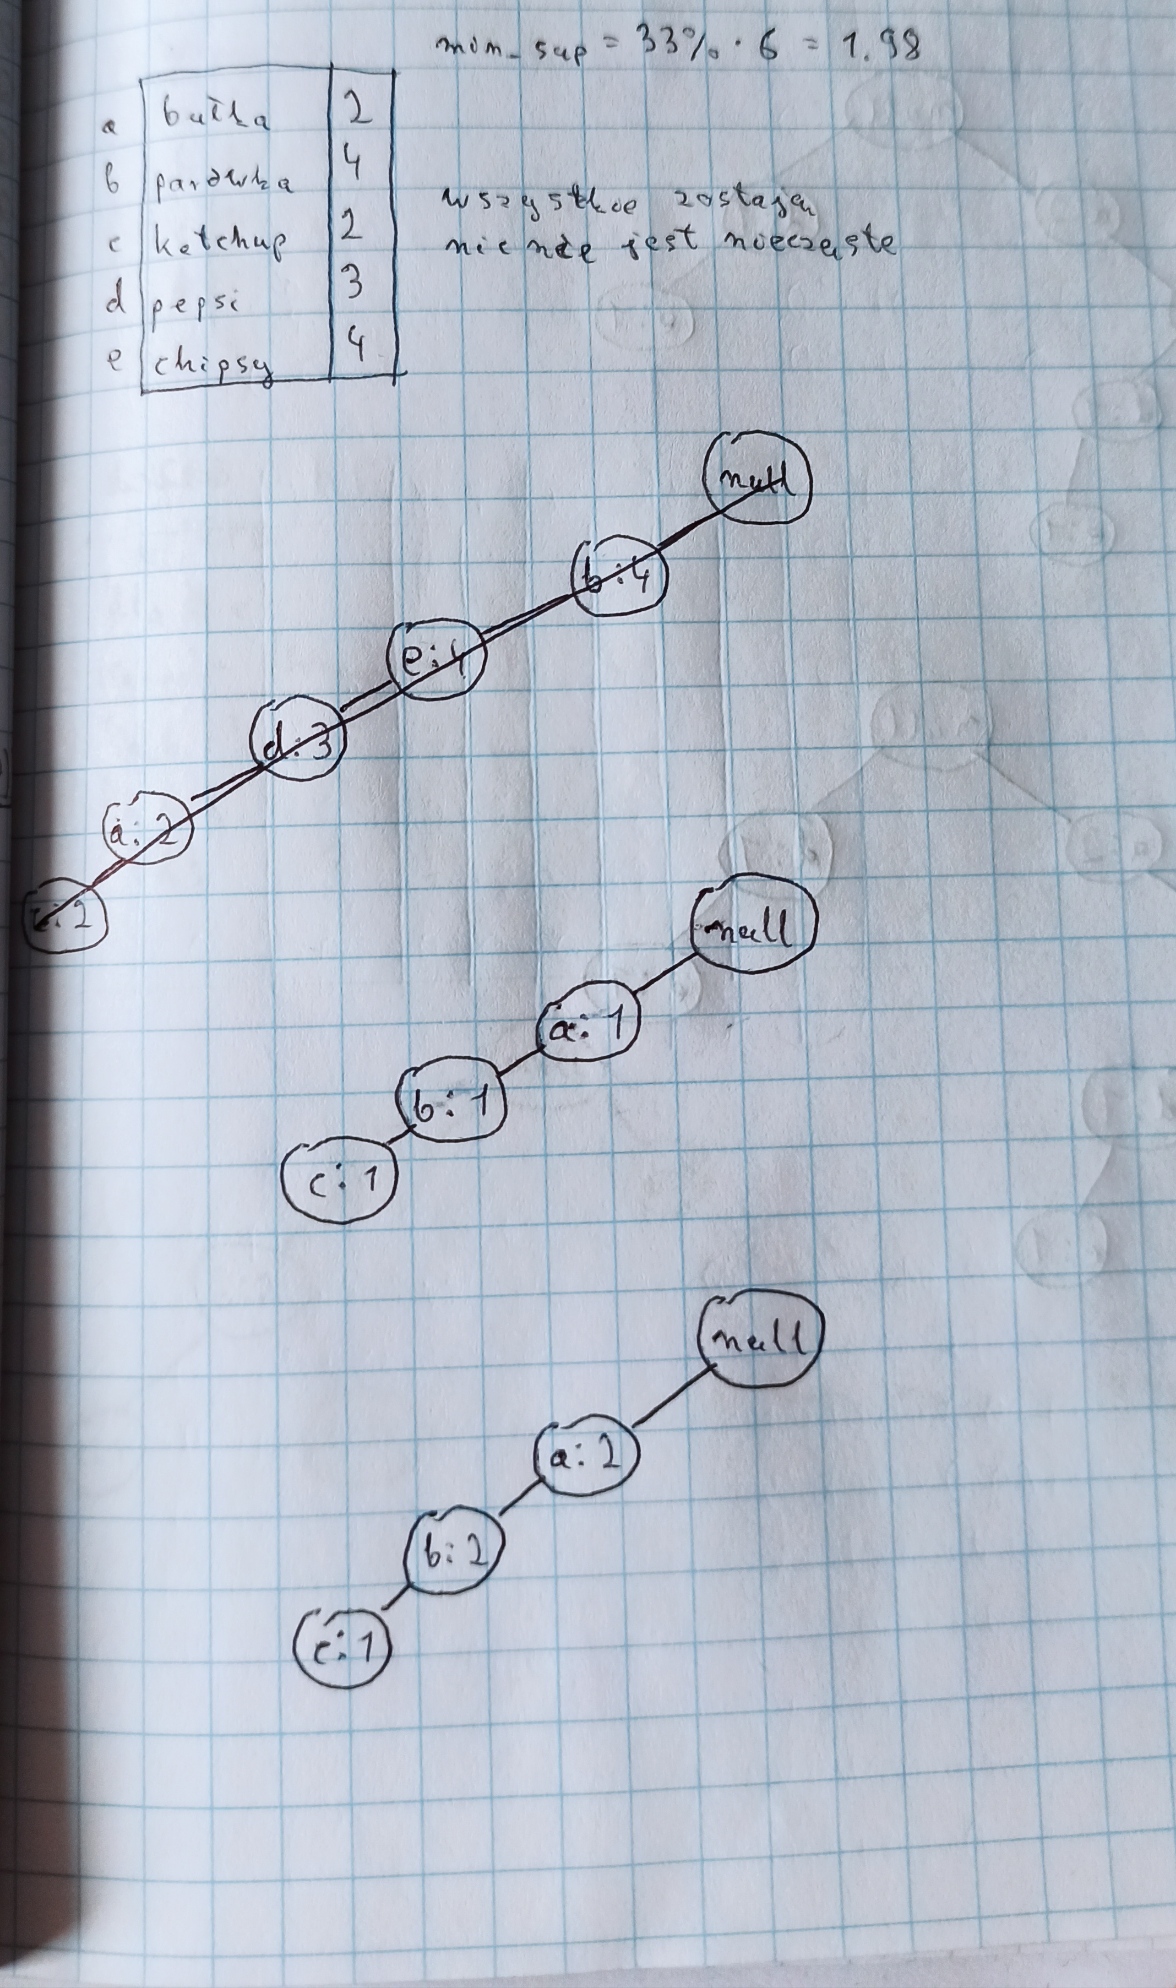 min_sup = 33% · 6 = 1.98
a bułka 2
b parówka 4
c ketchup 2
d pepsi 3
e chipsy 4
wszystkie zostają
nic nie jest nieczęste
null
b:4
e:4
d:3
a:2
c:2
null
a:1
b:1
c:1
null
a:2
b:2
c:1